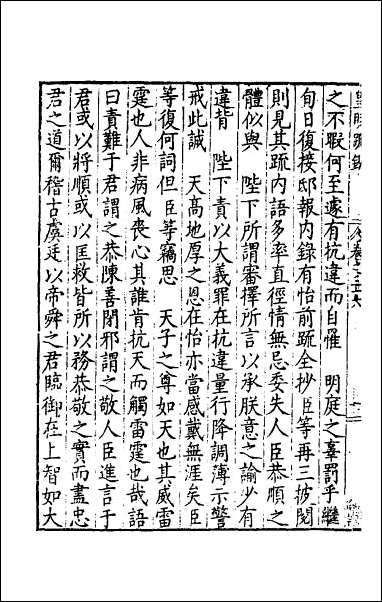 之不暇何至遽有抗違而自罹　明庭之辜罰乎繼
旬日復接邸報内錄有怡前疏全抄臣等再三披閱
則見其疏内語多率直徑情無忌委失人臣恭順之
體似與　陛下所謂審擇所言以承朕意之諭少有
違背　陛下責以大義罪在抗違量行降調薄示警
戒此誠　天高地厚之恩在怡亦當感戴無涯矣臣
等復何詞但臣等竊思　天子之尊如天也其威雷
霆也人非病風喪心其誰肯抗天而觸雷霆也哉語
曰責難于君謂之恭陳善閉邪謂之敬人臣進言于
君或以將順或以匡救皆所以務恭敬之實而盡忠
君之道爾稽古虞廷以帝舜之君臨御在上智如大